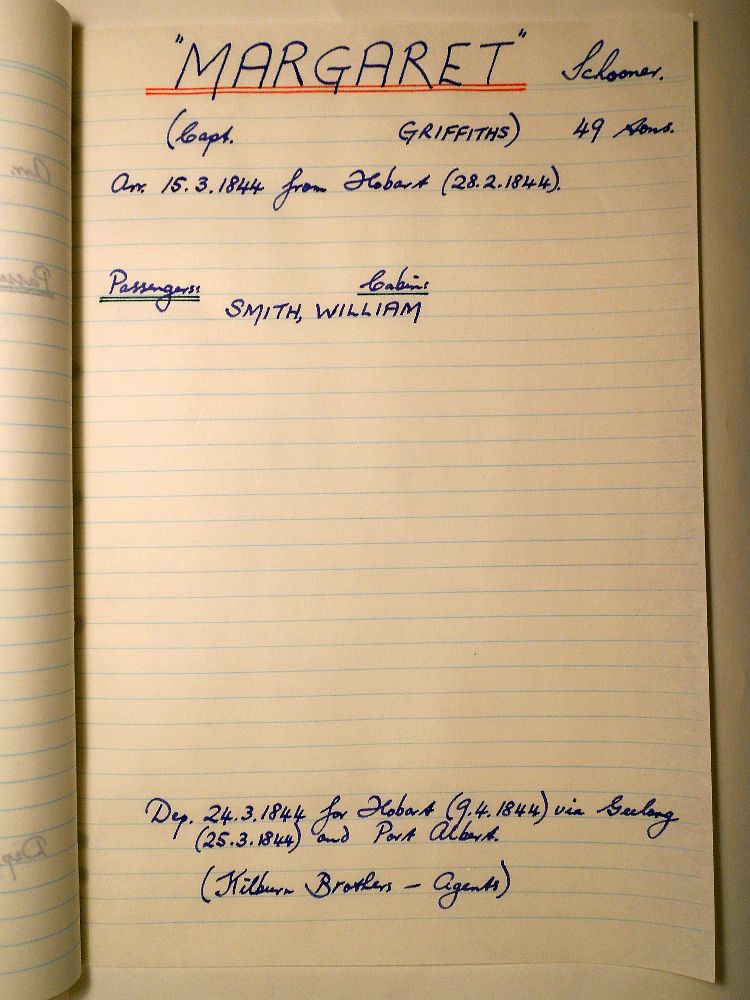 "MARGARET" Schooner.
(Capt. GRIFFITHS) 49 tons.
Arr. 15.3.1844 from Hobart (28.2.1844).
Passengers: Cabin:
SMITH, WILLIAM
Dep. 24.3.1844 for Hobart (9.4.1844) via Geelong
(25.3.1844) and Port Albert.
(Kilburn Brothers - Agents)